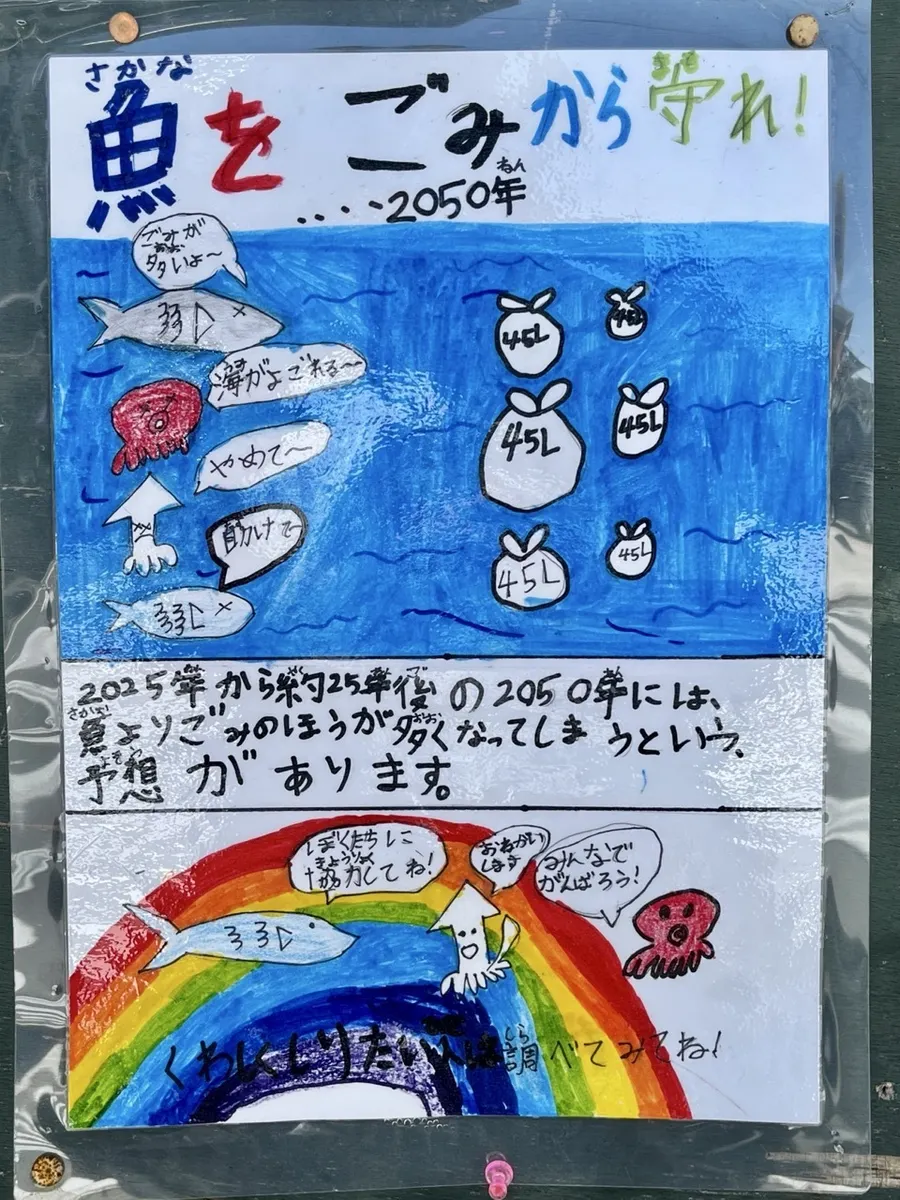 さかな
魚をごみから守れ!
まも
‥‥2050年
ねん
ごみが
おお
多いよ〜
海がよごれる〜
やめて〜
助けて
45L
45L
45L
45L
45L
45L
2025年から約25年後の2050年には、
さかな
魚よりごみのほうが多くなってしまうという、
おお
よそう
予想があります。
ぼくたちに
きょうりょく
協力してね!
おねがい
します
みんなで
がんばろう!
くわしくしりたい人は調べてみてね!
しら